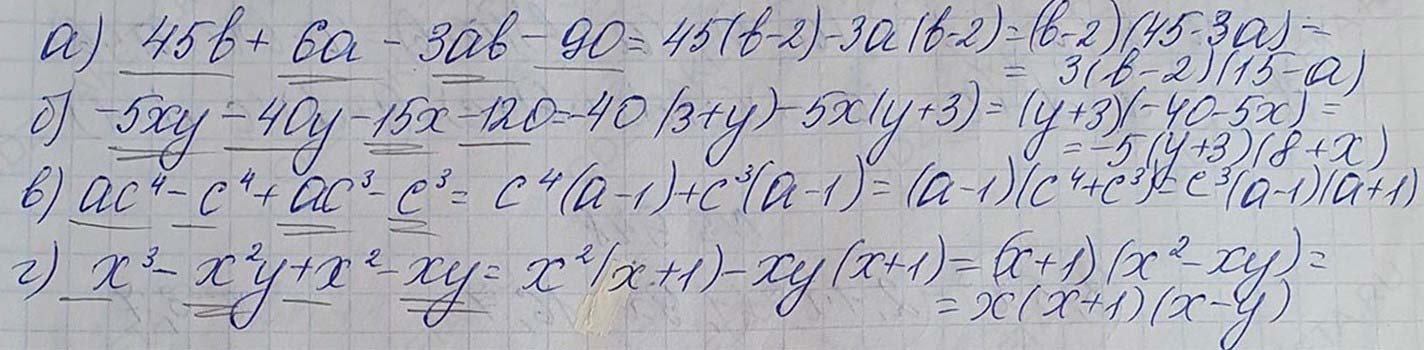 а) 45b + 6a - 3ab - 90 = 45(b-2) - 3a(b-2) = (b-2)(45-3a) =
= 3(b-2)(15-a)
б) -5xy - 40y - 15x - 120 = -40(3+y) - 5x(y+3) = (y+3)(-40-5x) =
= -5(y+3)(8+x)
в) ac⁴ - c⁴ + ac³ - c³ = c⁴(a-1) + c³(a-1) = (a-1)(c⁴+c³) = c³(a-1)(a+1)
г) x³ - x²y + x² - xy = x²(x+1) - xy(x+1) = (x+1)(x²-xy) =
= x(x+1)(x-y)